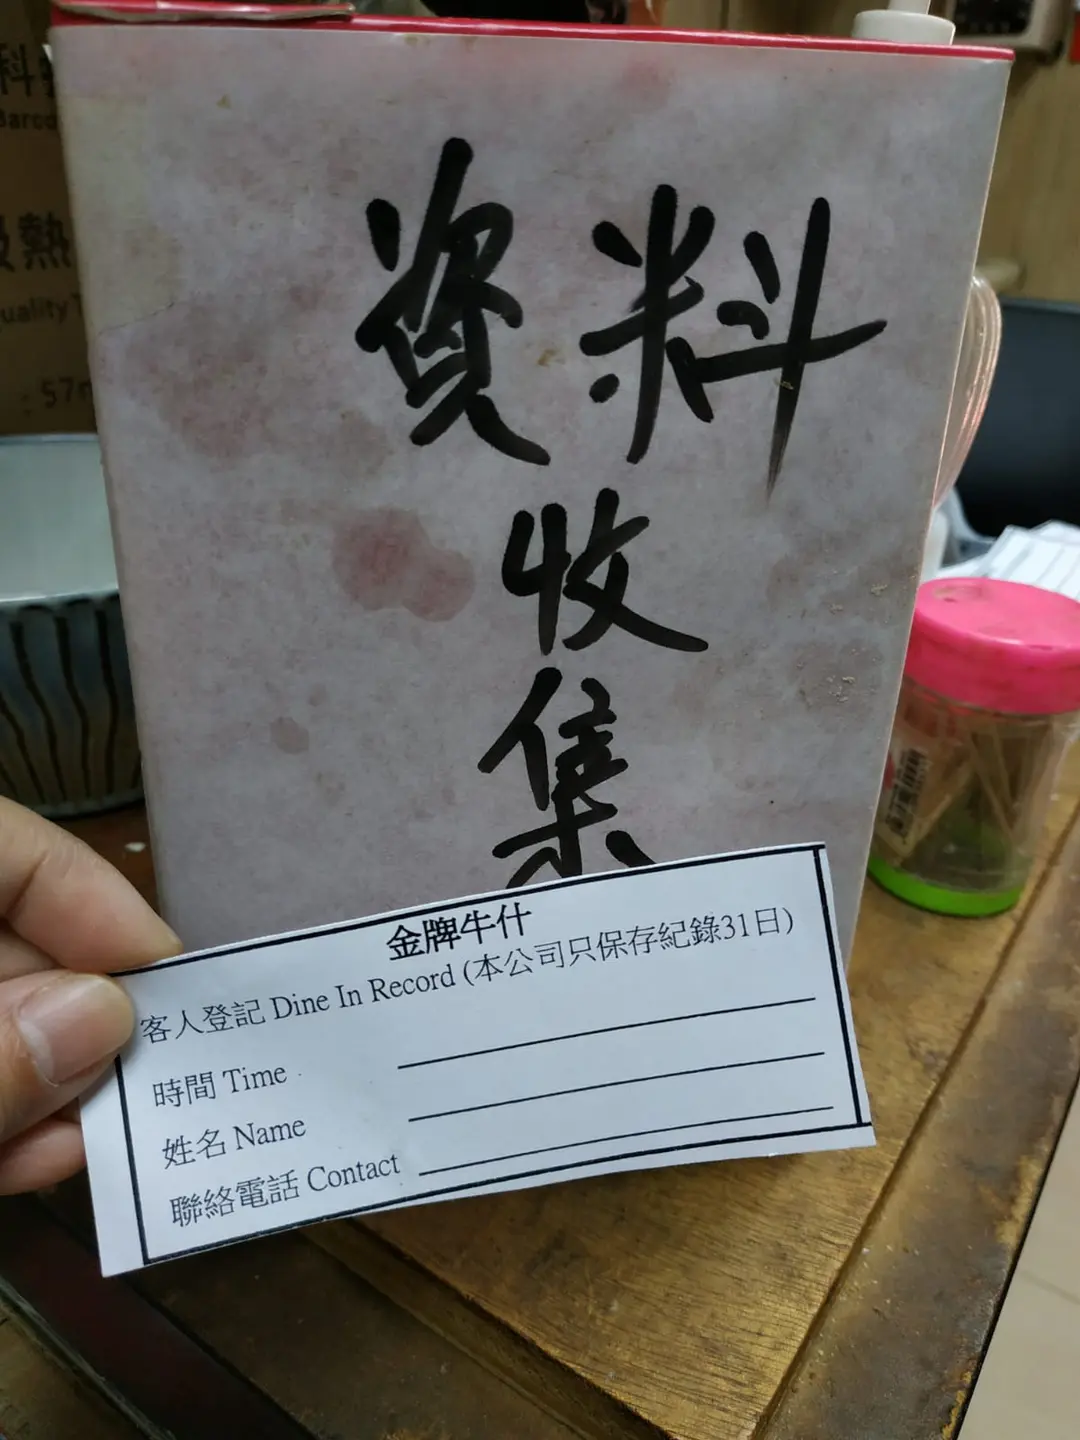 資料
收
集
金牌牛什
客人登記 Dine In Record (本公司只保存紀錄31日)
時間 Time
姓名 Name
聯絡電話 Contact
科
Barco
熱
uality T
: 57m